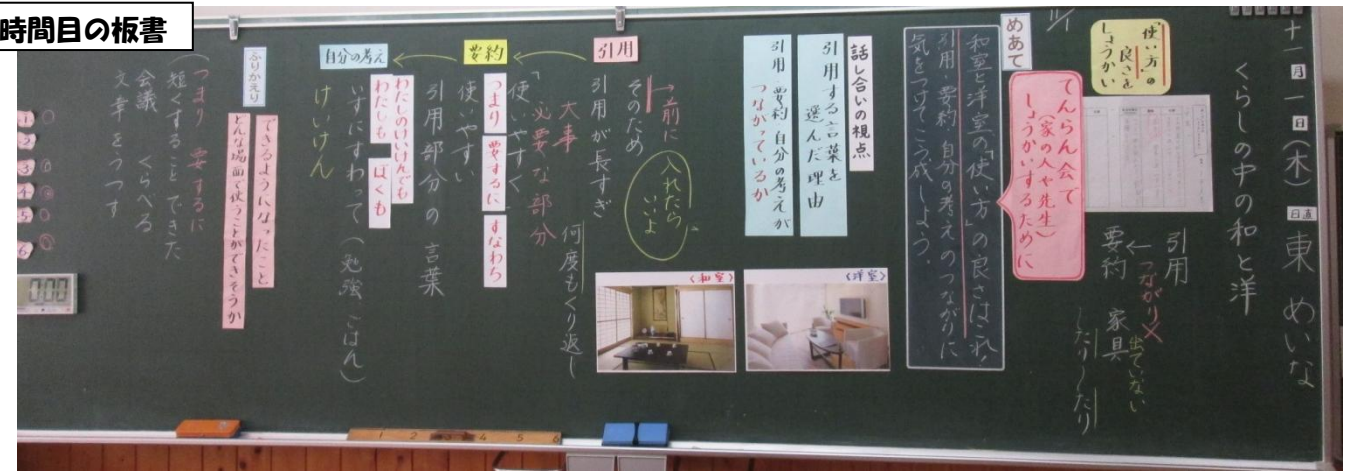 時間目の板書
十一月一日(木)
日直
東 めいな
くらしの中の和と洋
「使い方」の
良さを
しょうかい
引用
つながり×
要約
家具
出ていない
したり したり
11/1
てんらん会で
(家の人や先生)
しょうかいするために
めあて
和室と洋室の「使い方」の良さはこれ!
引用・要約・自分の考えのつながりに
気をつけてこう成しよう。
話し合いの視点
引用する言葉を
選んだ理由
引用・要約・自分の考えが
つながっているか
〈洋室〉
〈和室〉
引用
→前に
入れたら
いいよ
そのため
引用が長すぎ
何度もくり返し
大事
必要な部分
要約
使いやすく
つまり 要するに すなわち
使いやすい
引用部分の言葉
自分の考え
わたしのいけんでも
わたしも ぼくも
いすにすわって(勉強 ごはん)
けいけん
ふりかえり
できるようになったこと
どんな場面で使うことができそうか
つまり 要するに
短くすることできた
会議 くらべる
文章をつつす
1
2
3
4
5
6
0:00
1 2 3 4 5 6